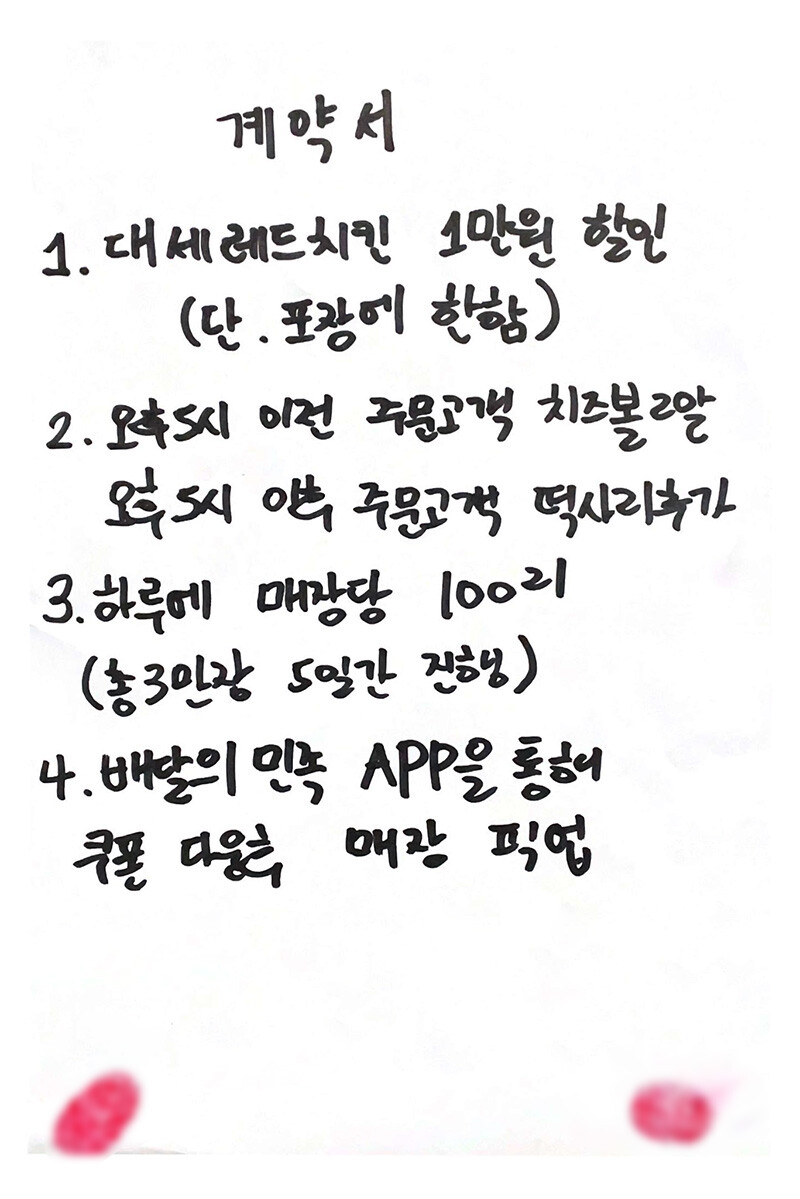 계약서
1. 대세레드치킨 1만원 할인
(단. 포장에 한함)
2. 오후5시 이전 주문고객 치즈볼2알
오후5시 이후 주문고객 떡사리추가
3. 하루에 매장당 100리
(총3만장 5일간 진행)
4. 배달의민족 APP을 통해
쿠폰 다운후 매장 픽업